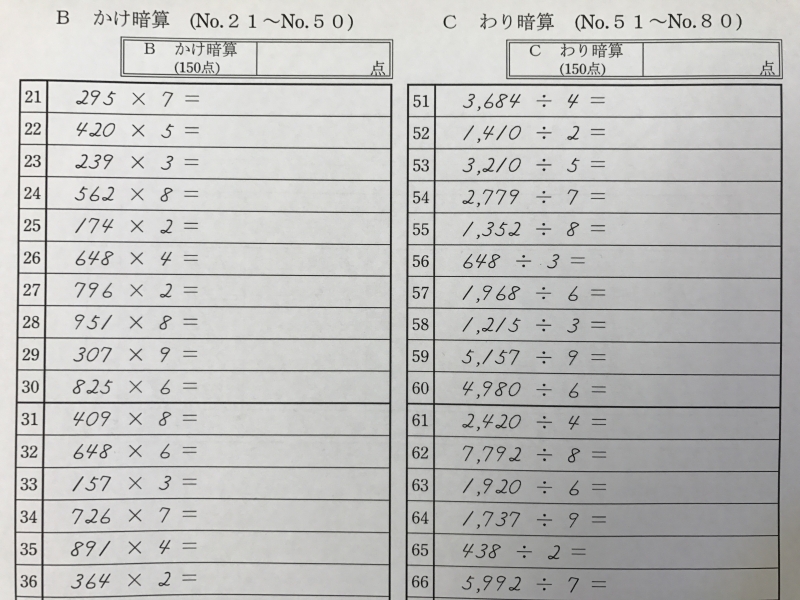 B かけ暗算 (No.21～No.50)
B かけ暗算
(150点)
点
21 295 × 7 =
22 420 × 5 =
23 239 × 3 =
24 562 × 8 =
25 174 × 2 =
26 648 × 4 =
27 796 × 2 =
28 951 × 8 =
29 307 × 9 =
30 825 × 6 =
31 409 × 8 =
32 648 × 6 =
33 157 × 3 =
34 726 × 7 =
35 891 × 4 =
36 364 × 2 =
C わり暗算 (No.51～No.80)
C わり暗算
(150点)
点
51 3,684 ÷ 4 =
52 1,410 ÷ 2 =
53 3,210 ÷ 5 =
54 2,779 ÷ 7 =
55 1,352 ÷ 8 =
56 648 ÷ 3 =
57 1,968 ÷ 6 =
58 1,215 ÷ 3 =
59 5,157 ÷ 9 =
60 4,980 ÷ 6 =
61 2,420 ÷ 4 =
62 7,792 ÷ 8 =
63 1,920 ÷ 6 =
64 1,737 ÷ 9 =
65 438 ÷ 2 =
66 5,992 ÷ 7 =